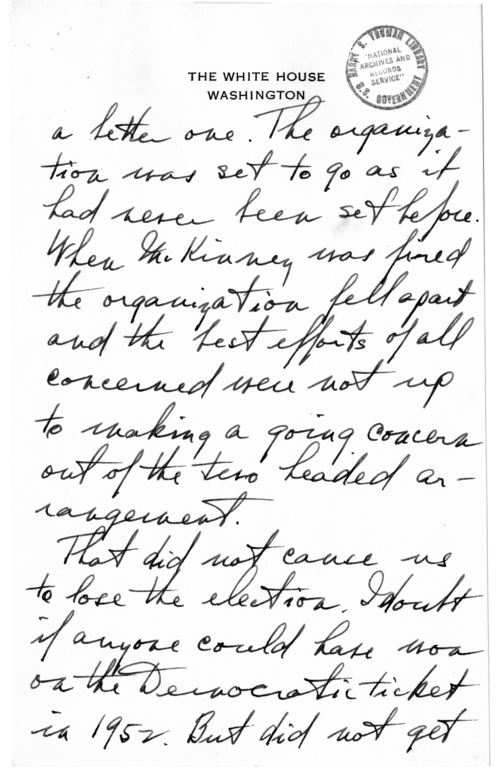 THE WHITE HOUSE
WASHINGTON
HARRY S. TRUMAN LIBRARY
"NATIONAL
ARCHIVES AND
RECORDS
SERVICE"
U.S. GOVERNMENT
a better one. The organiza-
tion was set to go as it
had never been set before.
When McKinney was fired
the organization fell apart
and the best efforts of all
concerned were not up
to making a going concern
out of the two headed ar-
rangement.
That did not cause us
to lose the election. I doubt
if anyone could have won
on the Democratic ticket
in 1952. But did not get